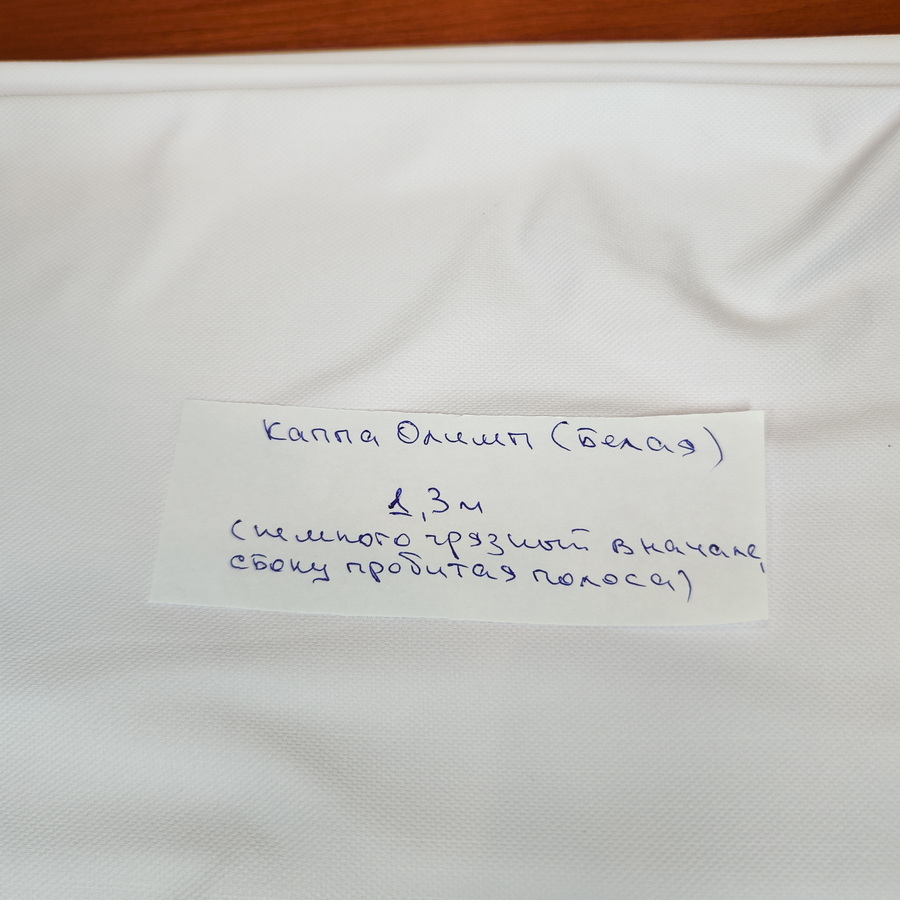 Каппа Олимп (Белая)
1,3 м
(немного грязный вначале,
сбоку пробитая полоса)